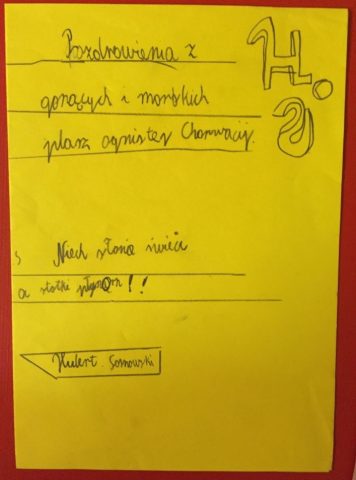 Pozdrowienia z
gorących i morskich
plasz ognistej Chorwacji.
H.
Niech słonie świeci
a statki płynom!!
Hubert Sosnowski